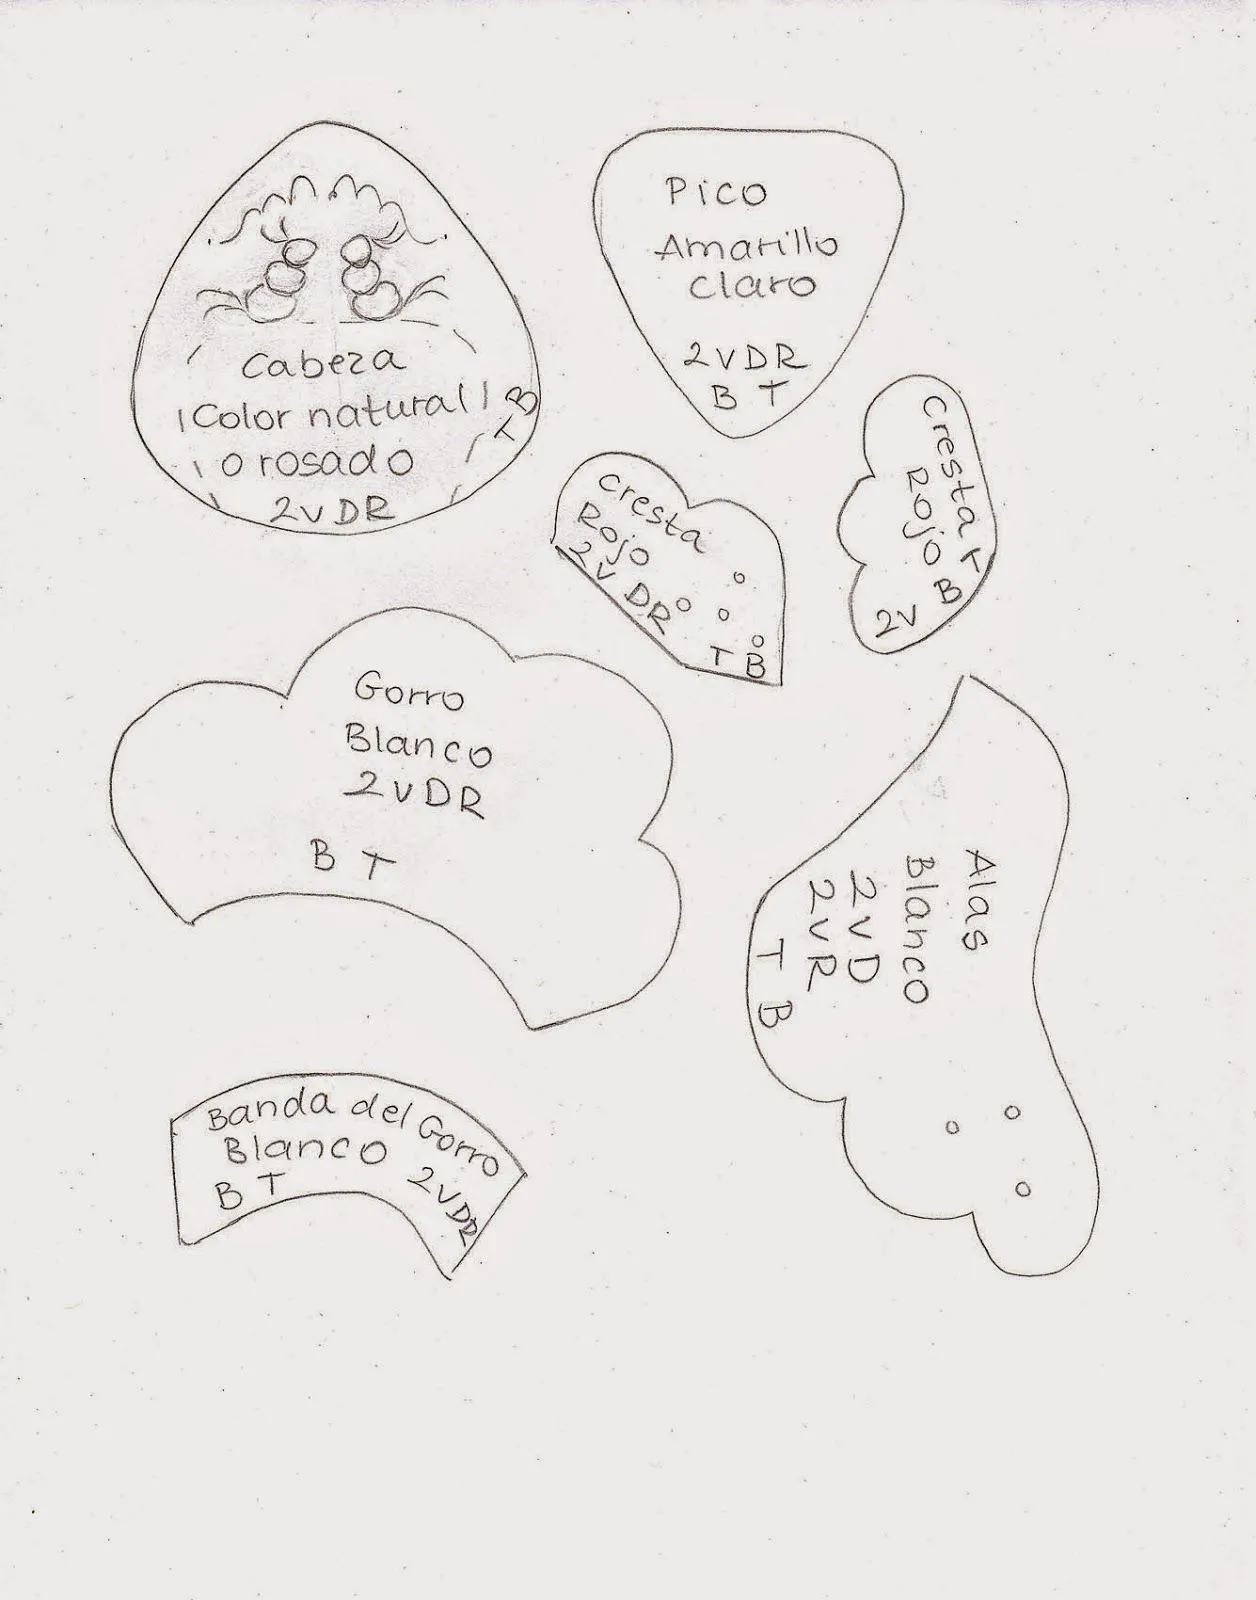 Cabeza
Color natural
o rosado
2v DR
B
T
Pico
Amarillo
claro
2VDR
B T
Cresta
Rojo
2v DR
T B
Cresta T
Rojo B
2V
Gorro
Blanco
2vDR
B T
Alas
Blanco
2vD
2vR
T B
Banda del Gorro
Blanco 2vDR
B T